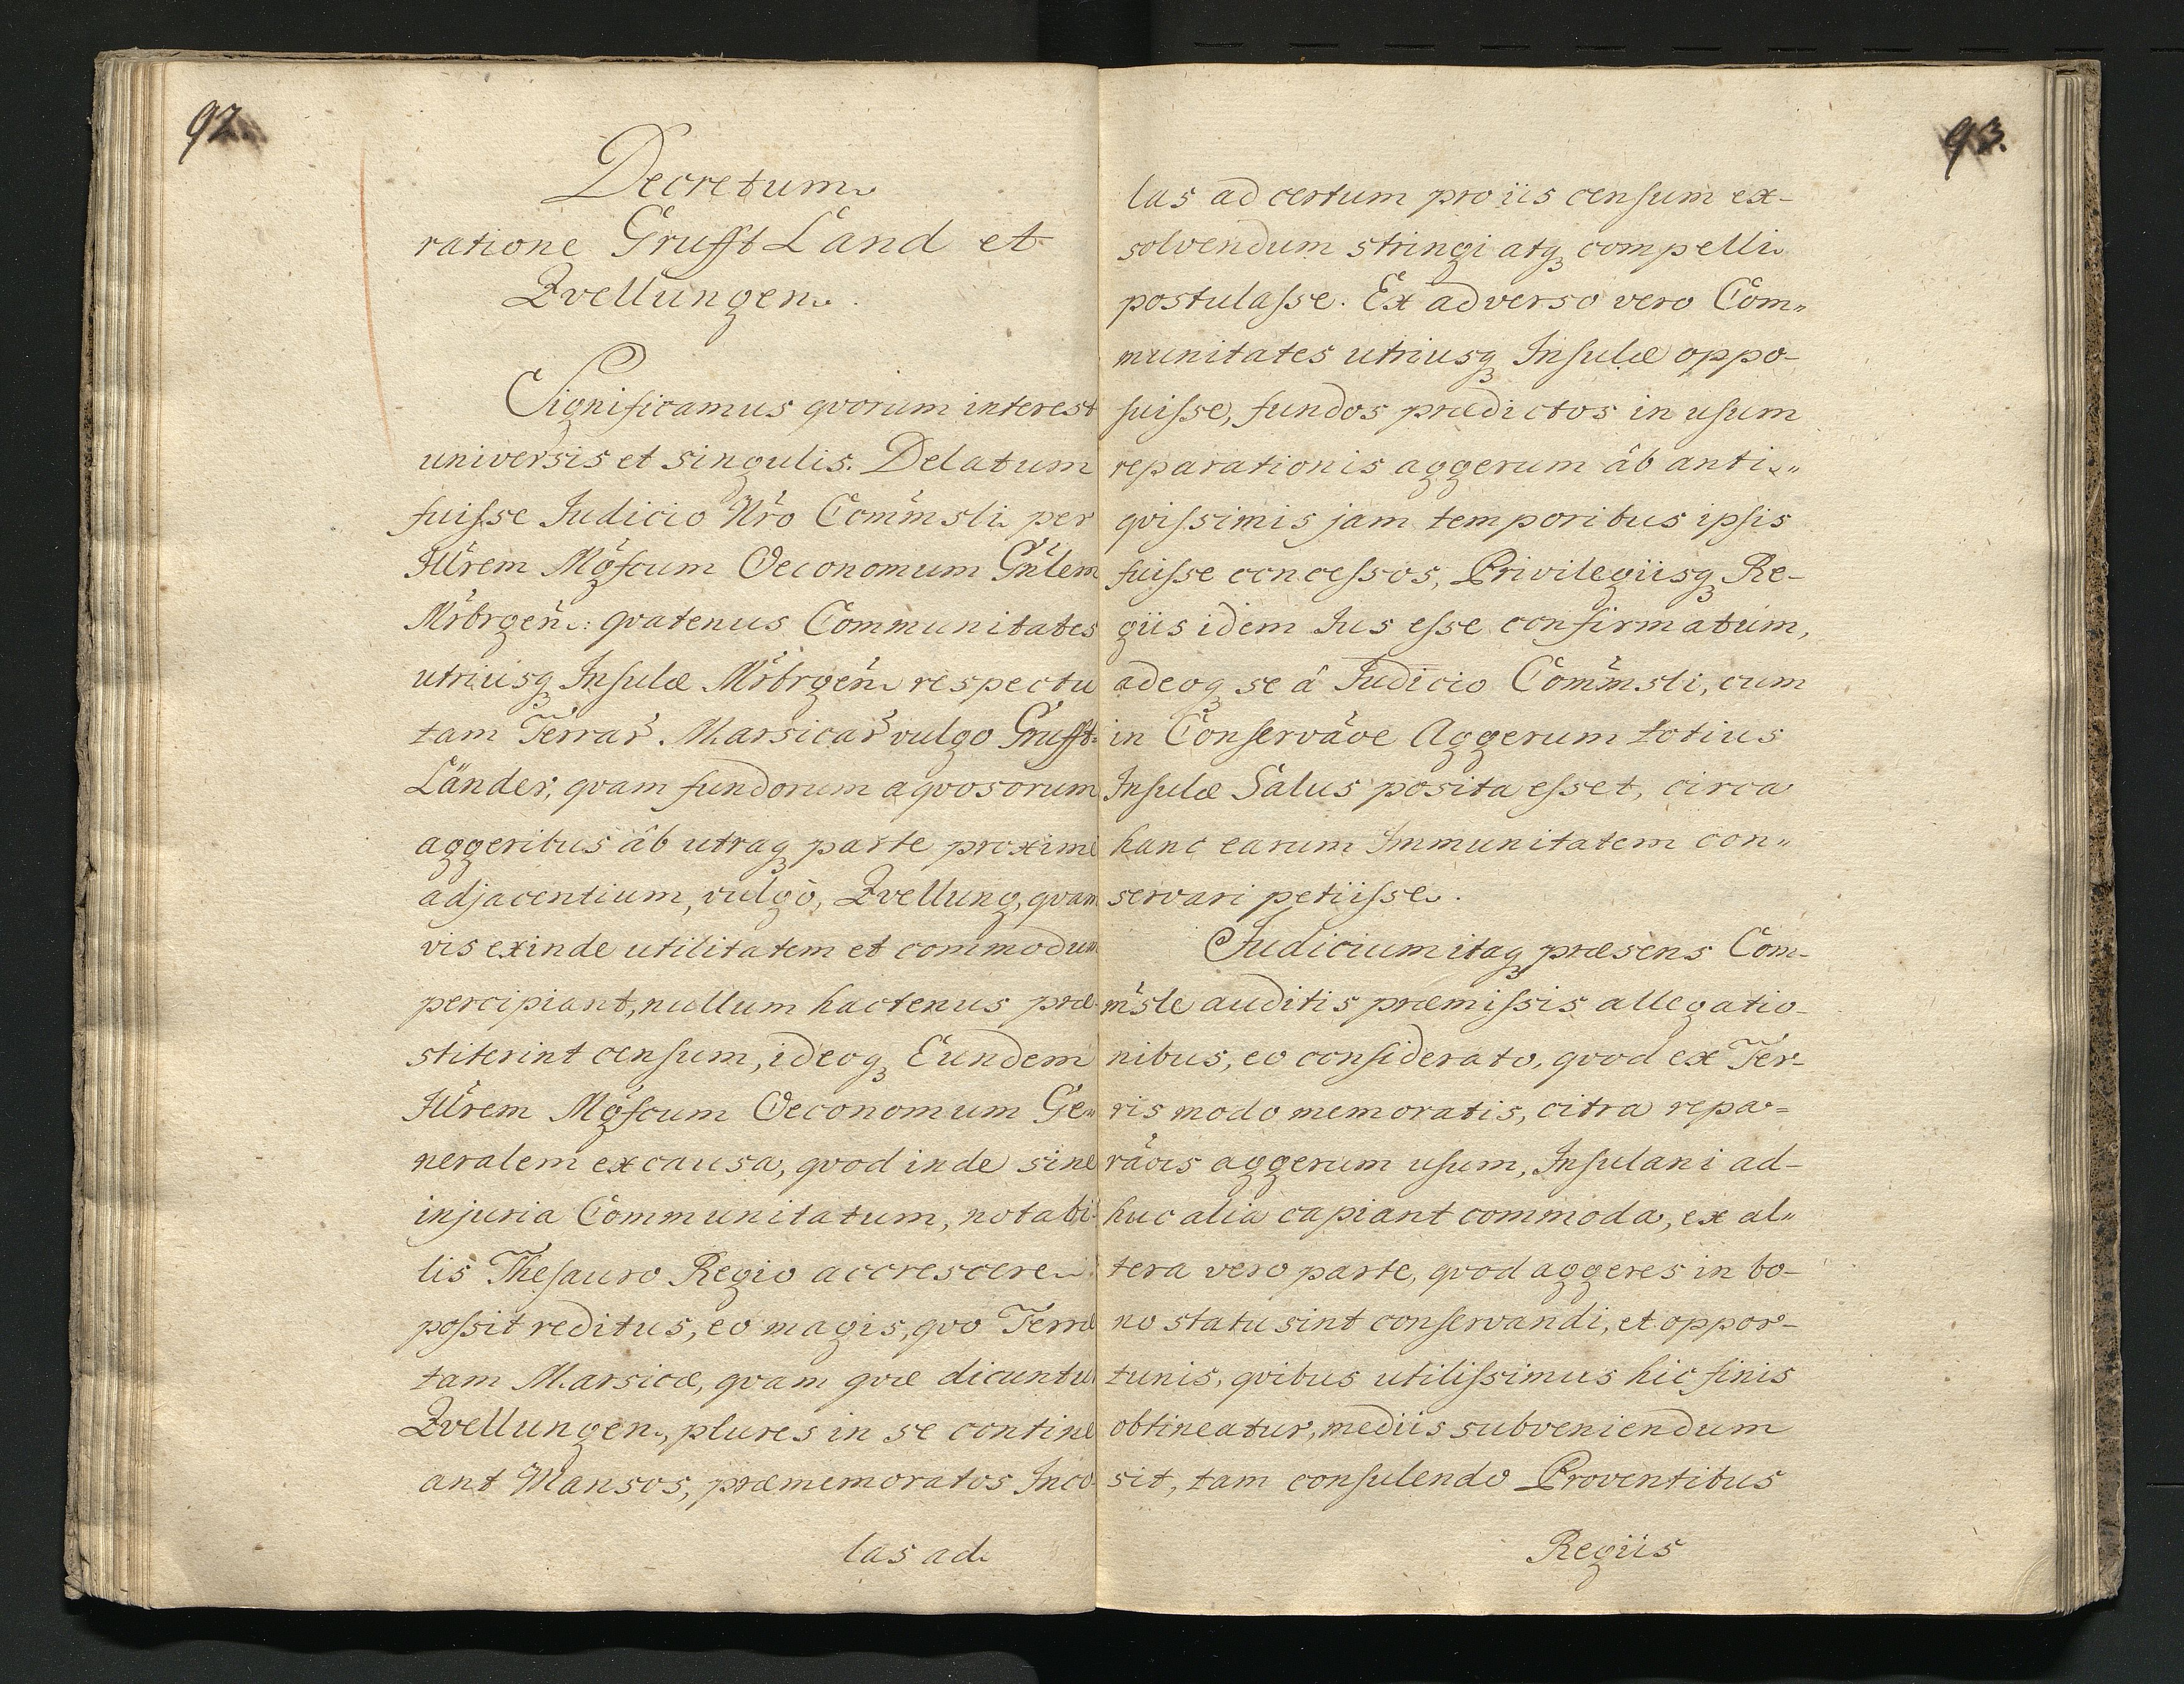 92.
Decretum
ratione Grufft Land et
Qvellungen.
Significamus qvorum interest
universis et singulis. Delatum
fuiſse Iudicio Nr̃o Com̃msli per
Illr̃em Mgfcum Oeconomum Gñlem
Mrbrgeñ: qvatenus Communitates
utriusq̨ Inſulæ Mrbrgeñ respectu
tam Terrar̃. Marsicar̃ vulgo Grufft-
Länder, qvam fundorum aqvosorum
aggeribus âb utraq̨ parte proxime
adjacentium, vulgò, Qvellung, qvam
vis exinde utilitatem et commodum
percipiant, nullum hactenus præ-
stiterint cenſum, ideoq̨ Eundem
Illr̃em Mgfcum Oeconomum Ge„
neralem ex causa, qvod inde sine
injuria Communitatum, notabi-
lis Theſauro Regio accrescere
poſsit reditus, eo magis, qvo Terræ
tam Marsicæ, qvam qvæ dicuntur
Qvellungen, plures in se contine
ant Mansos, præmemoratos Inco-
las ad
93.
las ad certum pro iis cenſum ex-
solvendum stringi atq̨ compelli
postulaſse. Ex adverso vero Com„
munitates utriusq̨ Inſulæ oppo-
ſuiſse, fundos prædictos in uſum
reparationis aggerum âb anti„
qviſsimis jam temporibus ipſis
fuiſse conceſsos, Privilegiisq̨ Re-
giis idem Ius eſse confirmatum,
adeoq̨ se â Iudicio Com̃msli, cum
in Conſervãoe Aggerum totius
Inſulæ Salus posita eſset, circa
hanc earum Immunitatem con„
servari petiiſse.
Iudicium itaq̨ præsens Com-
m̃sle auditis præmiſsis allegatio-
nibus, eo conſiderato, qvod ex Ter-
ris modo memoratis, citra repa-
rãois aggerum uſum, Inſulani ad-
huc alia capiant commoda, ex al„
tera vero parte, qvod aggeres in bo-
no statu sint conſervandi, et oppor-
tunis, qvibus utiliſsimus hic finis
obtineatur, mediis subveniendum
sit, tam conſulendo Proventibus
Regiis